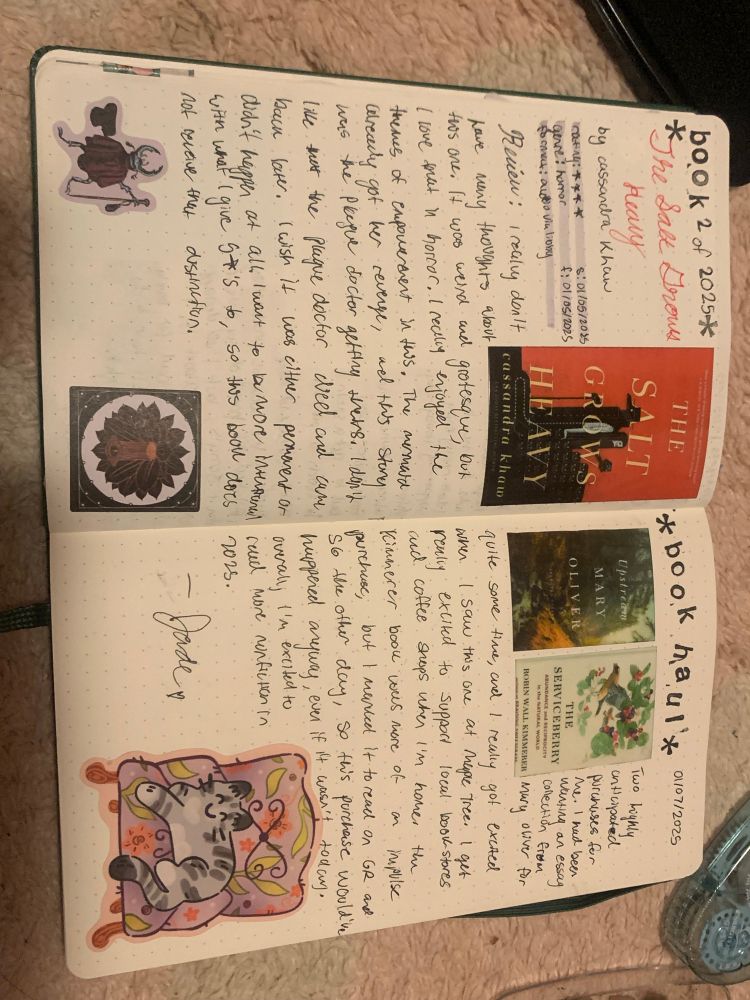 *book 2 of 2025*
The Salt Grows
Heavy
by cassandra khaw
rating: ★★★★ s: 01/05/2025
genre: horror f: 01/05/2025
format: audio via libby
Review: I really don't
have many thoughts about
this one. It was weird and grotesque, but
I love that in horror. I really enjoyed the
themes of empowerment in this. The mermaid
already got her revenge, and this story
was the plague doctor getting theirs. I didn't
like that the plague doctor died and came
back later. I wish it was either permanent or
didn't happen at all. I want to be more intentional
with what I give 5★'s to, so this book does
not receive that distinction.
THE
SALT
GROWS
HEAVY
cassandra khaw
*book haul*
01/07/2025
Upstream
MARY
OLIVER
THE
SERVICEBERRY
ABUNDANCE and RECIPROCITY
in the NATURAL WORLD
ROBIN WALL KIMMERER
Two highly
anticipated
purchases for
me. I had been
wanting an essay
collection from
Mary Oliver for
quite some time, and I really got excited
when I saw this one at Maple Tree. I get
really excited to support local bookstores
and coffee shops when I'm home. The
Kimmerer book was more of an impulse
purchase, but I marked it to read on GR and
SG the other day, so this purchase would've
happened anyway, even if it wasn't today.
overall, I'm excited to
read more nonfiction in
2025.
— Jade ♡